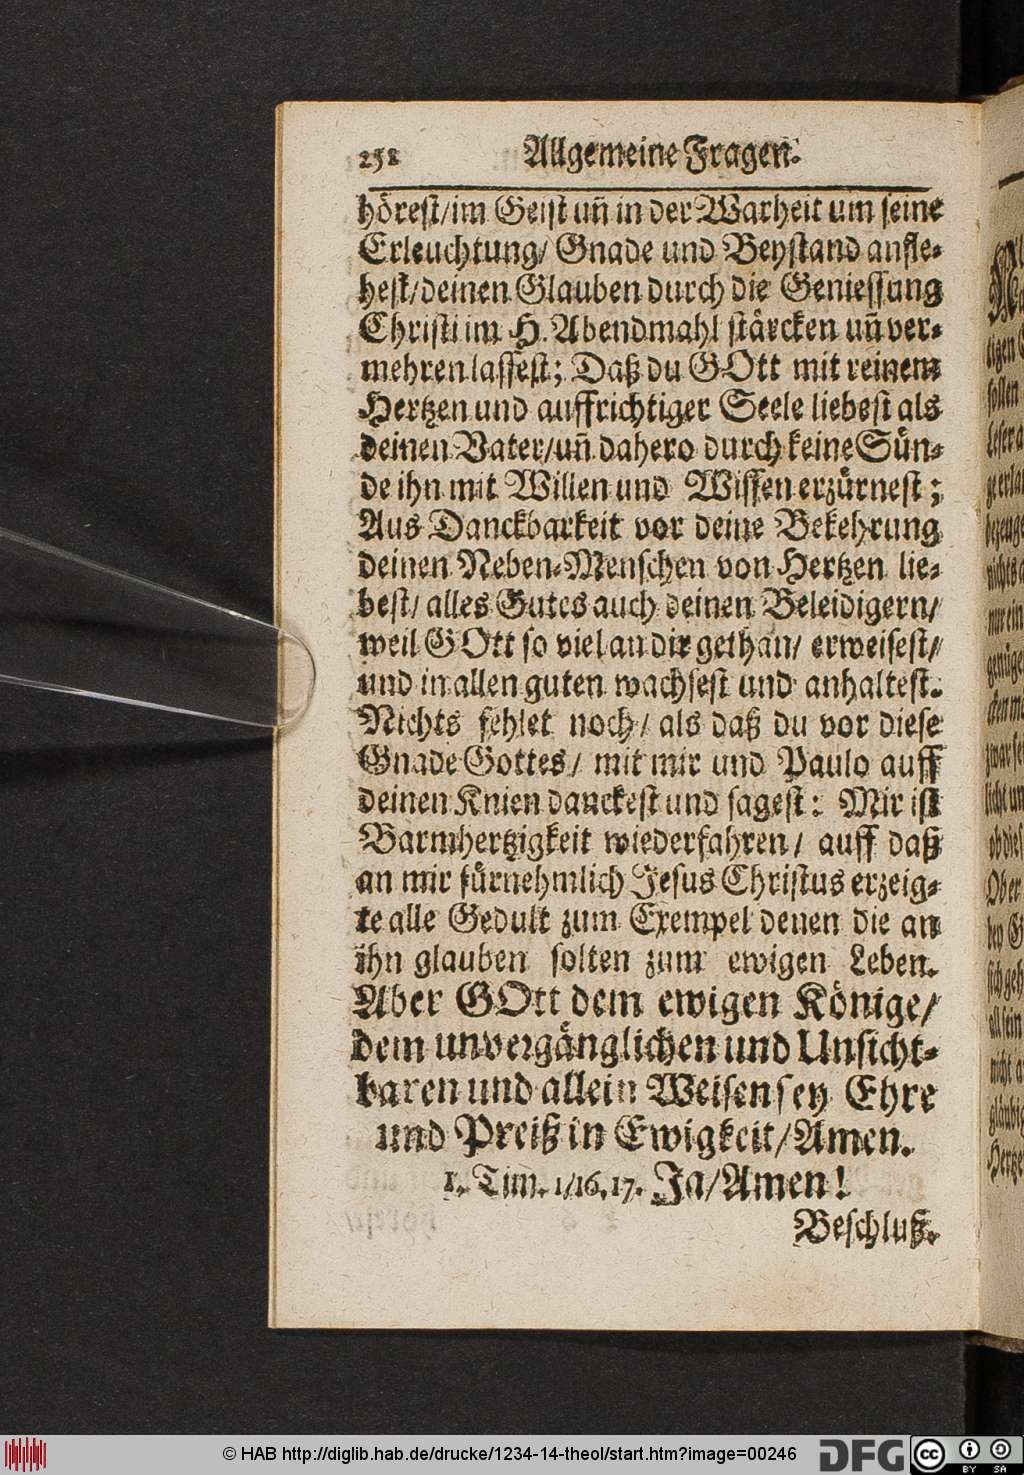 252 Allgemeine Fragen.
hörest/im Geist uñ in der Warheit um seine
Erleuchtung/ Gnade und Beystand anfle-
hest/deinen Glauben durch die Geniessung
Christi im H. Abendmahl stärcken uñ ver-
mehren lassest; Daß du GOtt mit reinem
Hertzen und auffrichtiger Seele liebest als
deinen Vater/uñ dahero durch keine Sün-
de ihn mit Willen und Wissen erzürnest;
Aus Danckbarkeit vor deine Bekehrung
deinen Neben-Menschen von Hertzen lie-
best/ alles Gutes auch deinen Beleidigern/
weil GOtt so viel an dir gethan/ erweisest/
und in allen guten wachsest und anhaltest.
Nichts fehlet noch/ als daß du vor diese
Gnade Gottes/ mit mir und Paulo auff
deinen Knien danckest und sagest: Mir ist
Barmhertzigkeit wiederfahren/ auff daß
an mir fürnehmlich Jesus Christus erzeig-
te alle Gedult zum Exempel denen die an
ihn glauben solten zum ewigen Leben.
Aber GOtt dem ewigen Könige/
dem unvergänglichen und Unsicht-
baren und allein Weisen sey Ehre
und Preiß in Ewigkeit/Amen.
1. Tim. 1/16, 17. Ja/Amen!
Beschluß.
© HAB http://diglib.hab.de/drucke/1234-14-theol/start.htm?image=00246
DFG
cc BY SA